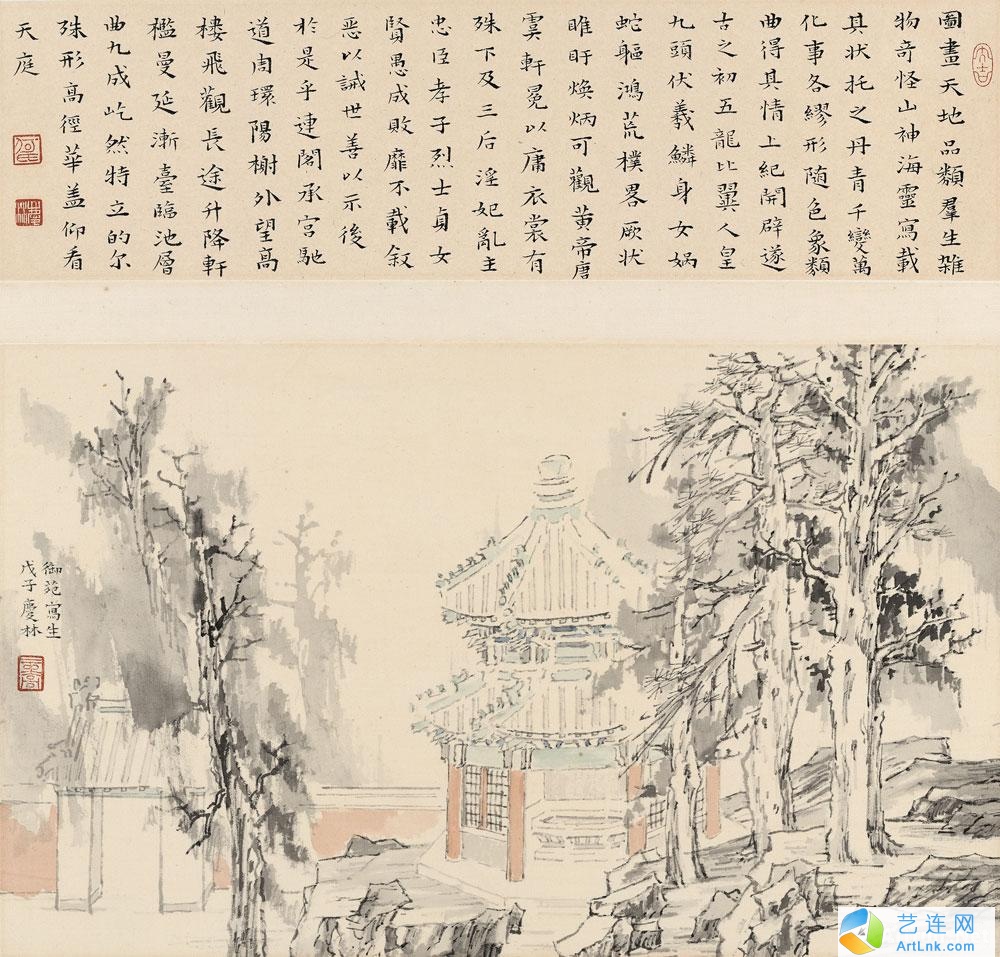 圖畫天地品類羣生雜
物奇怪山神海靈寫載
其狀托之丹青千變萬
化事各繆形隨色象類
曲得其情上紀開辟遂
古之初五龍比翼人皇
九頭伏羲鱗身女媧
蛇軀鴻荒樸畧厥状
睢盱煥炳可觀黃帝唐
虞軒冕以庸衣裳有
殊下及三后淫妃亂主
忠臣孝子烈士貞女
賢愚成敗靡不載叙
惡以誡世善以示後
於是乎連閣承宮馳
道周環陽榭外望高
樓飛觀長途升降軒
檻曼延漸臺臨池層
曲九成屹然特立的尔
殊形高徑華盖仰看
天庭
御苑寫生
戊子慶林
艺连网
ArtLnk.com